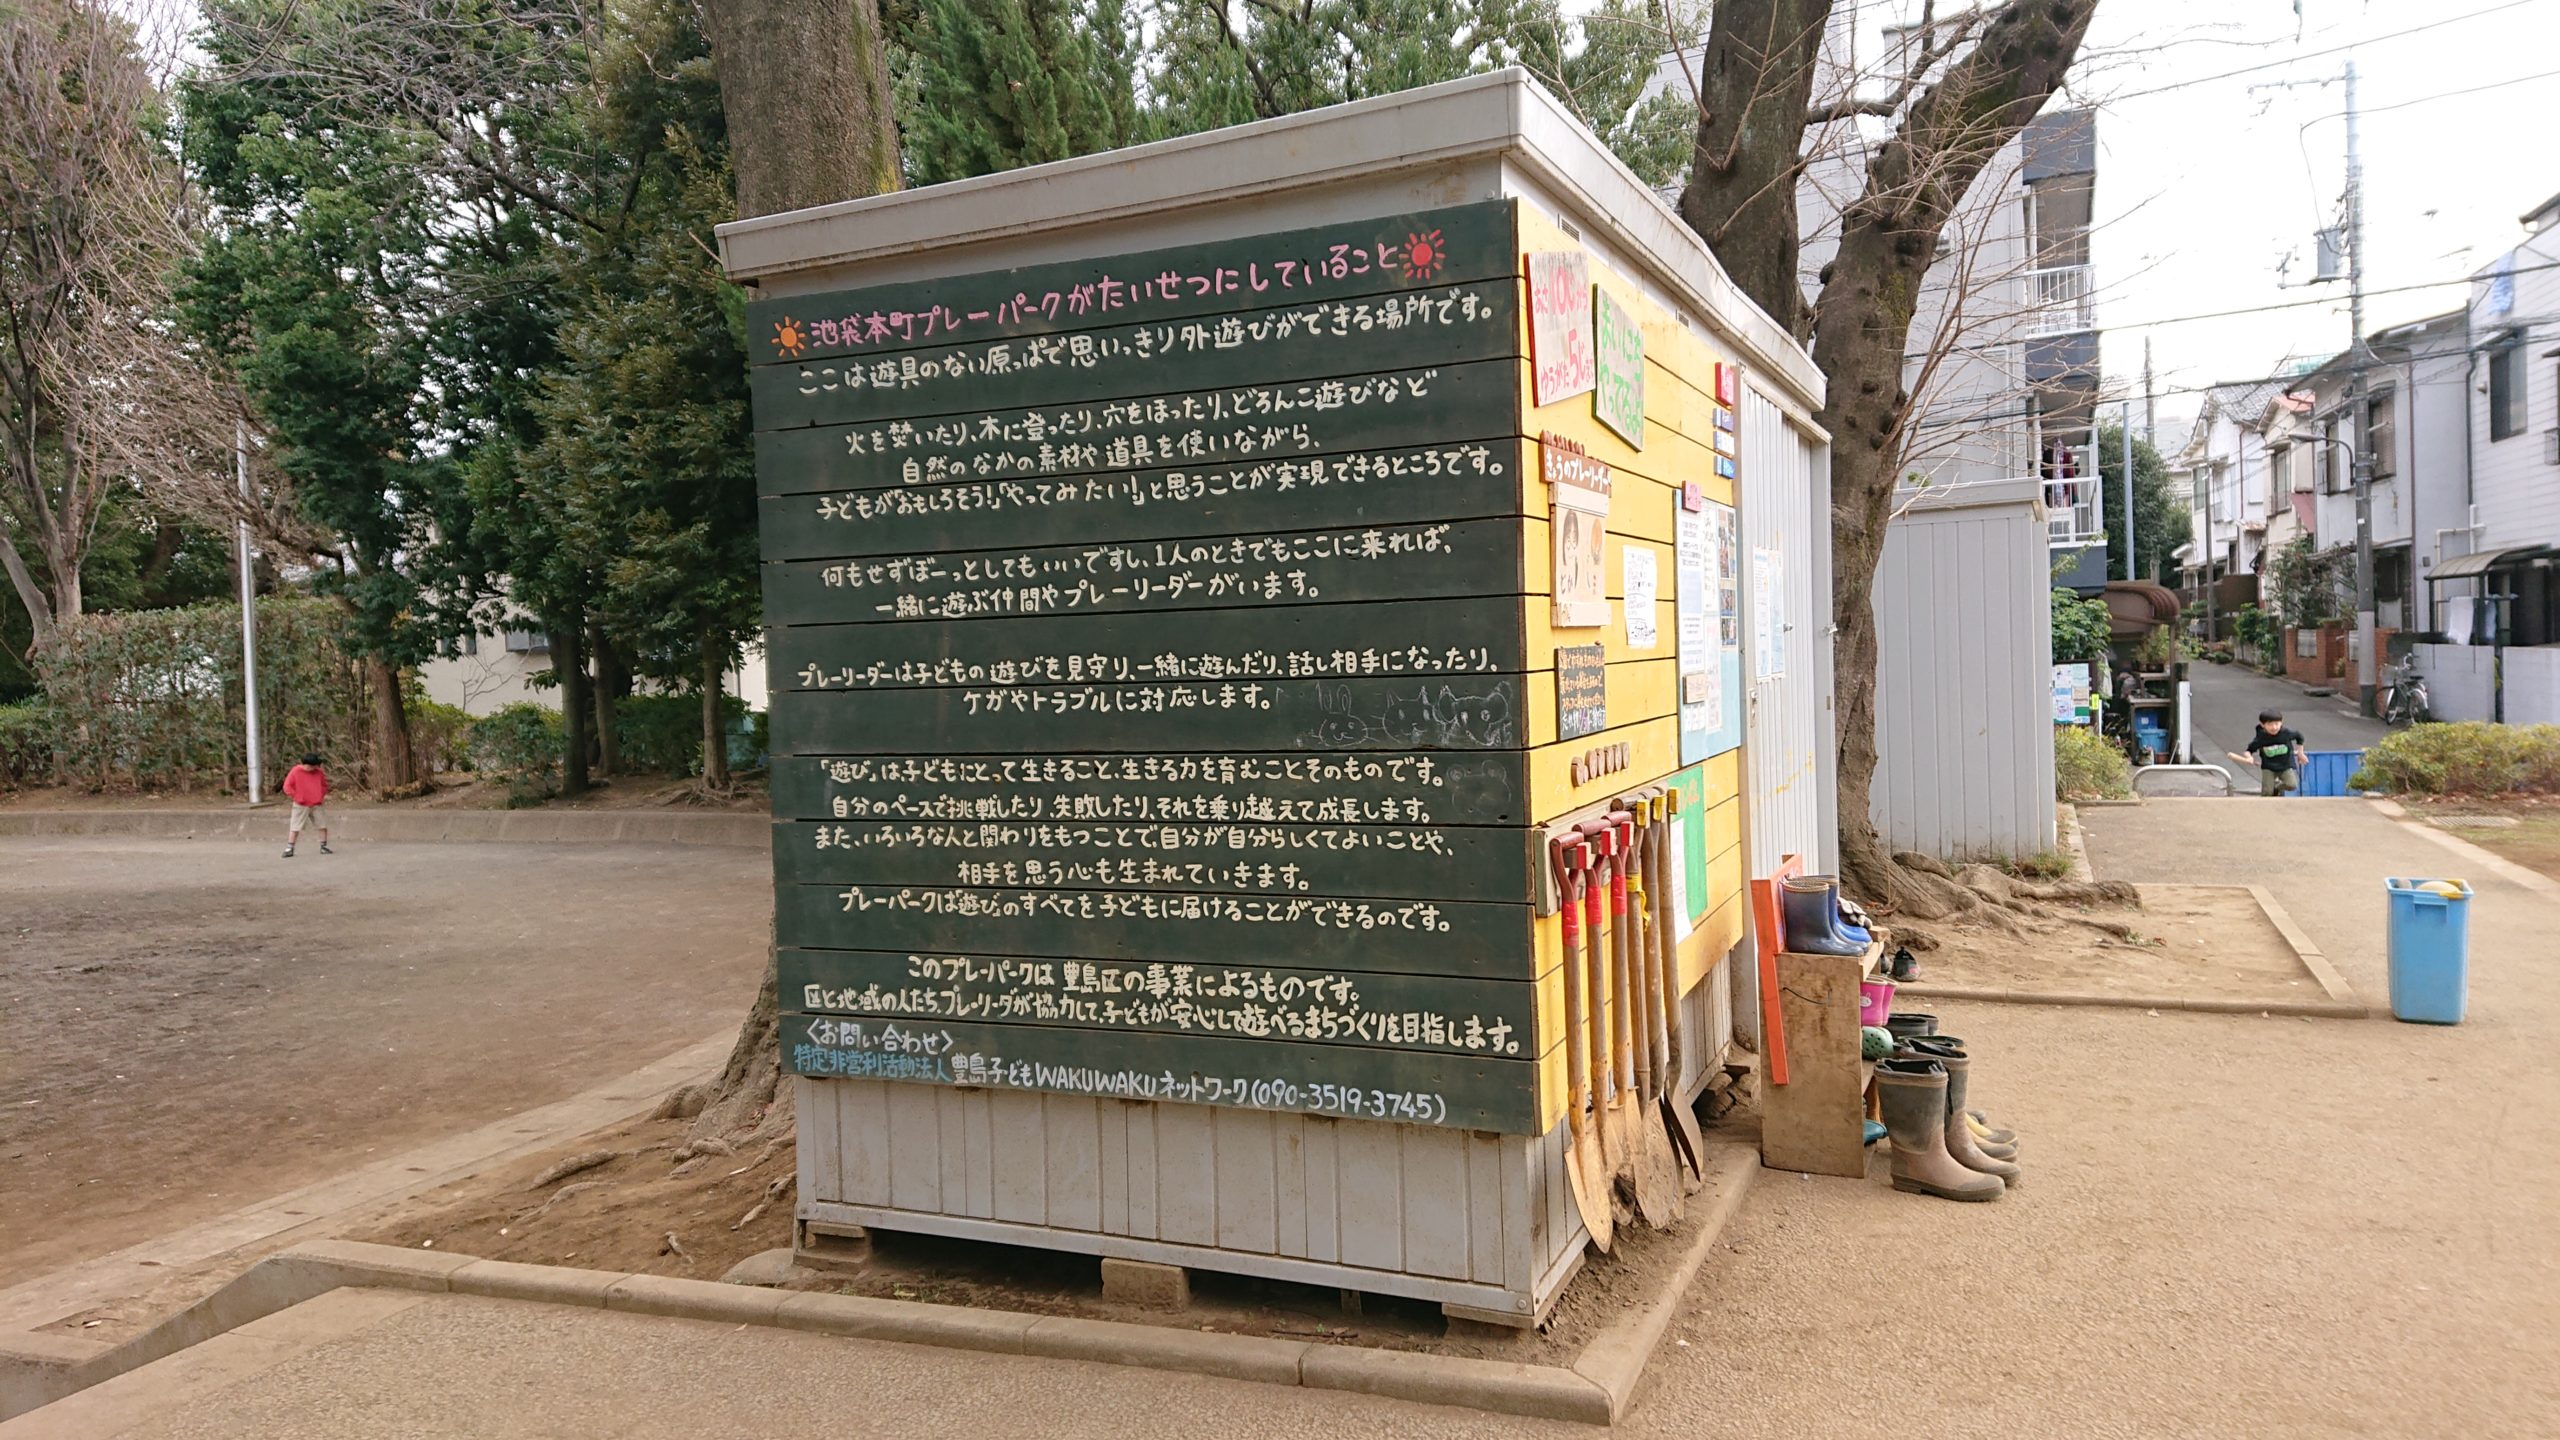 池袋本町プレーパークがたいせつにしていること
ここは遊具のない原っぱで思いっきり外遊びができる場所です。
火を焚いたり、木に登ったり、穴をほったり、どろんこ遊びなど
自然のなかの素材や道具を使いながら、
子どもが「おもしろそう!」「やってみたい!」と思うことが実現できるところです。
何もせずぼーっとしてもいいですし、1人のときでもここに来れば、
一緒に遊ぶ仲間やプレーリーダーがいます。
プレーリーダーは子どもの遊びを見守り、一緒に遊んだり、話し相手になったり、
ケガやトラブルに対応します。
「遊び」は子どもにとって生きること、生きる力を育むことそのものです。
自分のペースで挑戦したり、失敗したり、それを乗り越えて成長します。
また、いろいろな人と関わりをもつことで、自分が自分らしくてよいことや、
相手を思う心も生まれていきます。
プレーパークは「遊び」のすべてを子どもに届けることができるのです。
このプレーパークは豊島区の事業によるものです。
区と地域の人たち、プレーリーダーが協力して、子どもが安心して遊べるまちづくりを目指します。
〈お問い合わせ〉
特定非営利活動法人 豊島子どもWAKUWAKUネットワーク(090-3519-3745)
あさ10じから
ゆうがた5じまで
まいにち
やってるよ
きょうのプレーリーダー